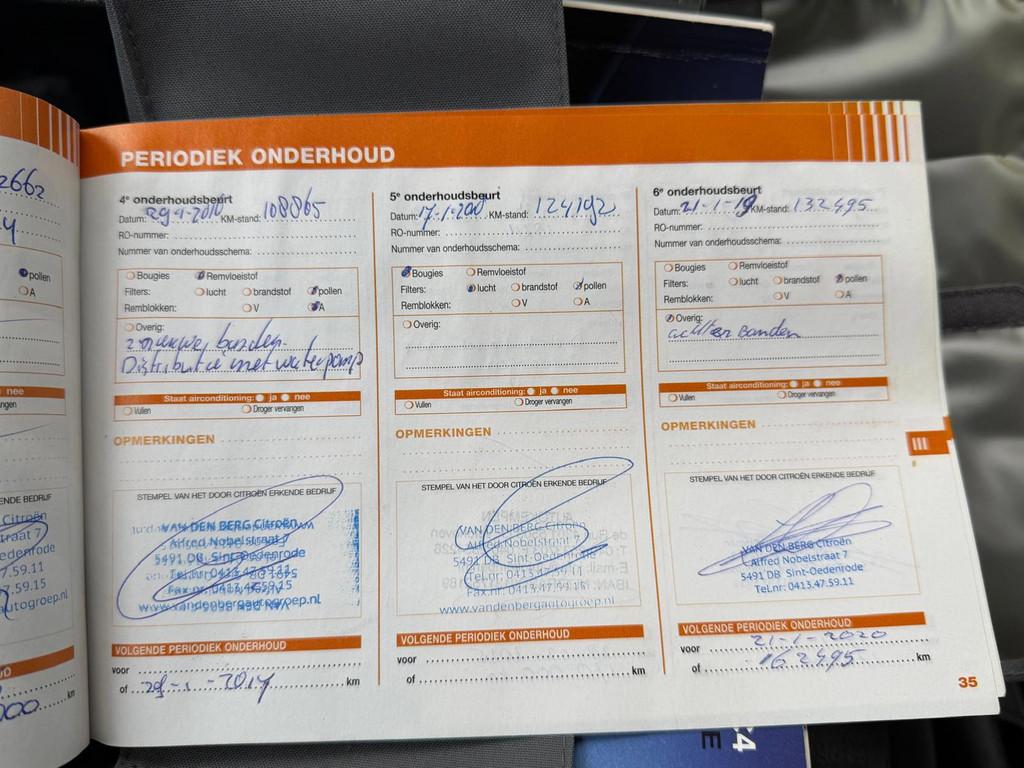 2662
4
pollen
A
nee
ngen
ENDE BEDRIJF
Citroën
aat 7
enrode
7.59.11
.59.15
autogroep.nl
UD
km
PERIODIEK ONDERHOUD
4e onderhoudsbeurt
Datum: KM-stand: 108865
RO-nummer:
Nummer van onderhoudsschema:
Bougies Remvloeistof
Filters: lucht brandstof pollen
Remblokken: V A
Overig:
2 nieuwe banden
Distributie met waterpomp
Staat airconditioning: ja nee
Vullen Droger vervangen
OPMERKINGEN
STEMPEL VAN HET DOOR CITROËN ERKENDE BEDRIJF
VAN DEN BERG Citroën
Alfred Nobelstraat 7
5491 DB Sint-Oedenrode
Tel.nr: 0413.47.59.11
Fax.nr: 0413.47.59.15
www.vandenbergautogroep.nl
VOLGENDE PERIODIEK ONDERHOUD
voor
of 29-1-2017 km
5e onderhoudsbeurt
Datum: KM-stand: 124192
RO-nummer:
Nummer van onderhoudsschema:
Bougies Remvloeistof
Filters: lucht brandstof pollen
Remblokken: V A
Overig:
Staat airconditioning: ja nee
Vullen Droger vervangen
OPMERKINGEN
STEMPEL VAN HET DOOR CITROËN ERKENDE BEDRIJF
VAN DEN BERG Citroën
Alfred Nobelstraat 7
5491 DB Sint-Oedenrode
Tel.nr: 0413.47.59.11
Fax.nr: 0413.47.59.15
www.vandenbergautogroep.nl
VOLGENDE PERIODIEK ONDERHOUD
voor
of km
6e onderhoudsbeurt
Datum: 21-1-19 KM-stand: 132495
RO-nummer:
Nummer van onderhoudsschema:
Bougies Remvloeistof
Filters: lucht brandstof pollen
Remblokken: V A
Overig:
achter banden
Staat airconditioning: ja nee
Vullen Droger vervangen
OPMERKINGEN
STEMPEL VAN HET DOOR CITROËN ERKENDE BEDRIJF
VAN DEN BERG Citroën
Alfred Nobelstraat 7
5491 DB Sint-Oedenrode
Tel.nr: 0413.47.59.11
VOLGENDE PERIODIEK ONDERHOUD
voor 21-1-2020
of 162495 km
III
35
C4